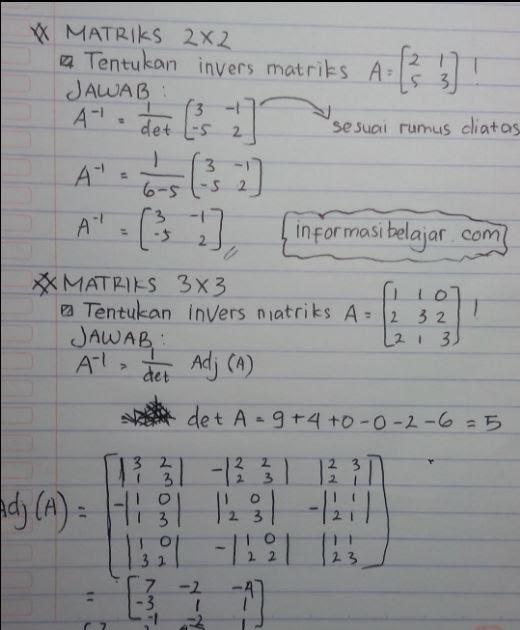 MATRIKS 2x2
Tentukan invers matriks A = [2 1; 5 3] !
JAWAB :
A⁻¹ = 1/det [3 -1; -5 2] → sesuai rumus diatas
A⁻¹ = 1/(6-5) [3 -1; -5 2]
A⁻¹ = [3 -1; -5 2] //
informasibelajar.com
MATRIKS 3x3
Tentukan invers matriks A = [1 1 0; 2 3 2; 2 1 3] !
JAWAB :
A⁻¹ = 1/det Adj (A)
det A = 9+4+0-0-2-6 = 5
Adj (A) = [|3 2; 1 3| -|2 2; 2 3| |2 3; 2 1|
-|1 0; 1 3| |1 0; 2 3| -|1 1; 2 1|
|1 0; 3 2| -|1 0; 2 2| |1 1; 2 3|]
= [7 -2 -4
-3 1 1
-1 -2 1]